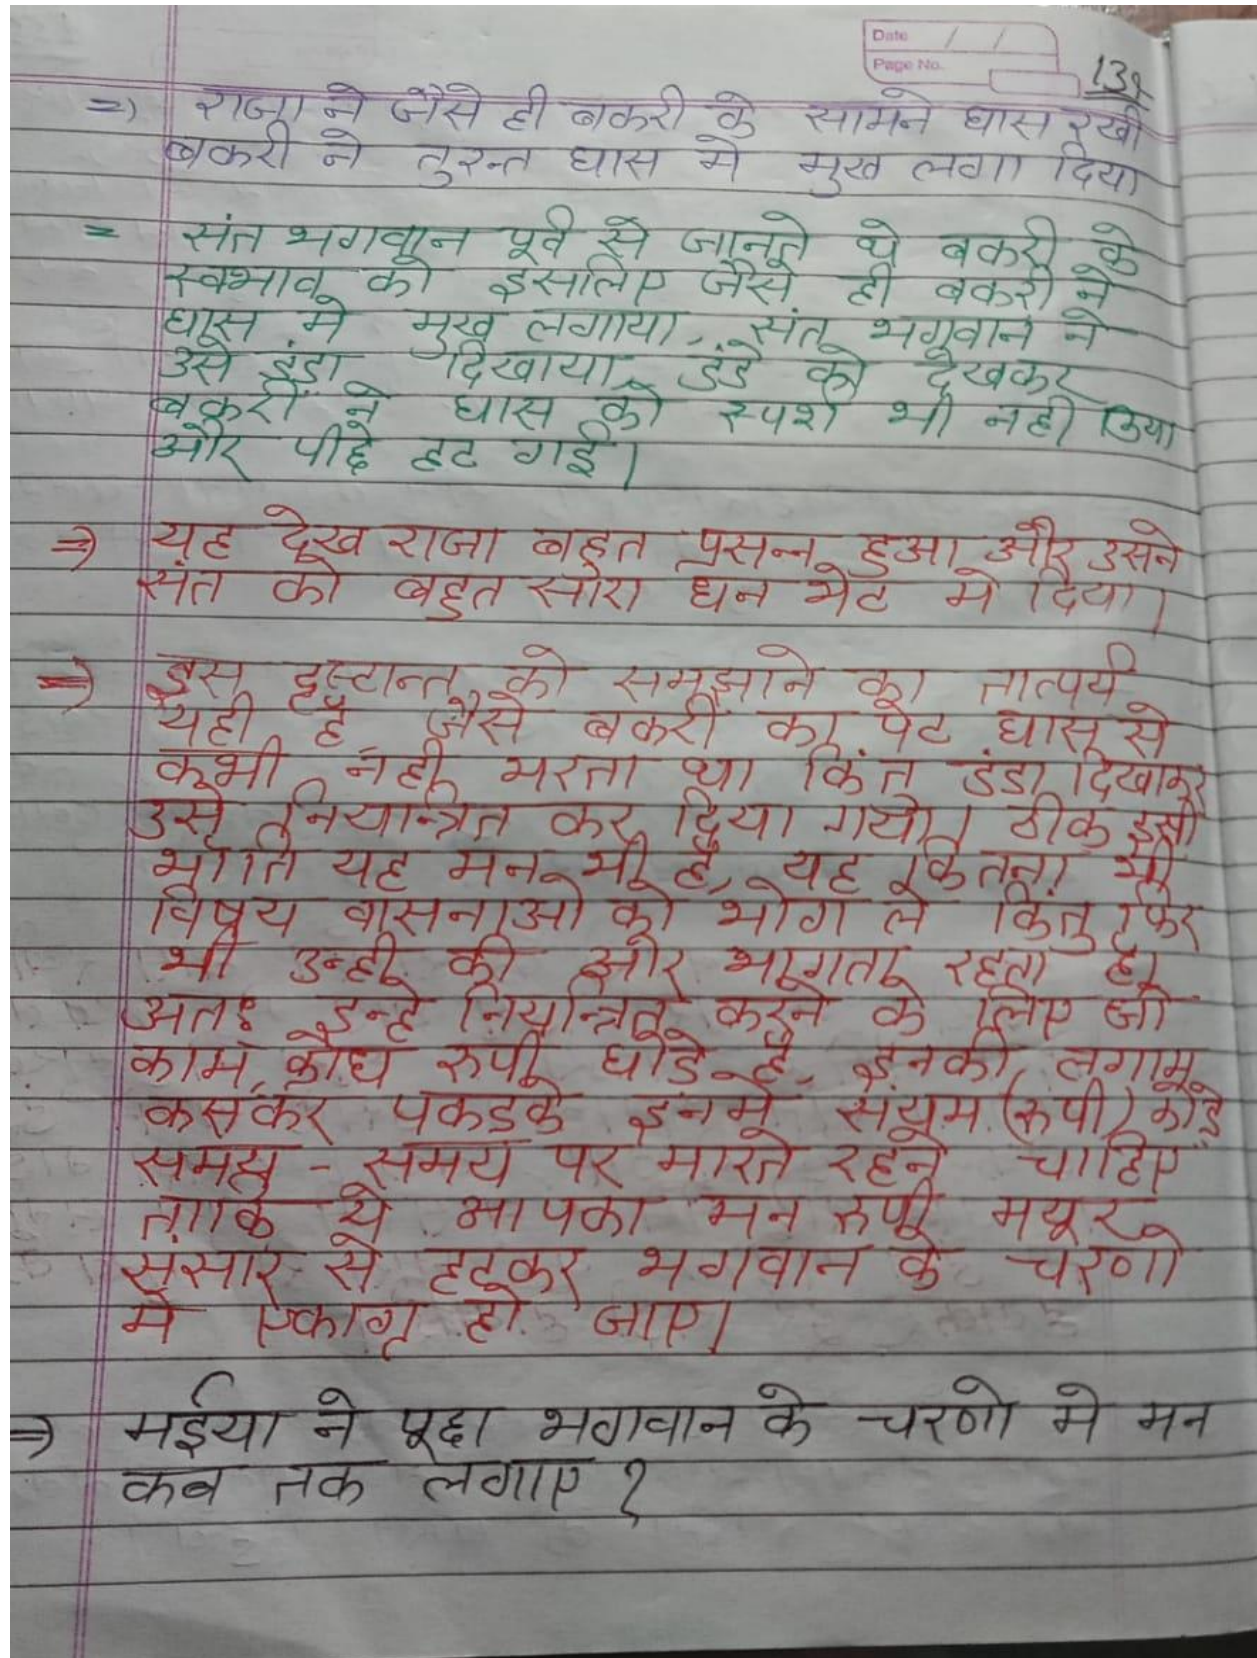 Date / /
Page No.
139
=) राजा ने जैसे ही बकरी के सामने घास रखी
बकरी ने तुरन्त घास मे मुख लगा दिया
= संत भगवान पूर्व से जानते थे बकरी के
स्वभाव को इसलिए जैसे ही बकरी ने
घास मे मुख लगाया, संत भगवान ने
उसे डंडा दिखाया, डंडे को देखकर
बकरी ने घास को स्पर्श भी नही किया
और पीछे हट गई।
⇒ यह देख राजा बहुत प्रसन्न हुआ और उसने
संत को बहुत सारा धन भेट मे दिया।
⇒ इस दृष्टान्त को समझाने का तात्पर्य
यही है, जैसे बकरी का पेट घास से
कभी नही भरता था किंतु डंडा दिखाकर
उसे नियान्त्रित कर दिया गया। ठीक इसी
भाति यह मन भी है, यह कितना भी
विषय वासनाओ को भोग ले किंतु फिर
भी उन्ही की ओर भागता रहता है।
अतः इन्हे नियन्त्रित करने के लिए जो
काम, क्रोध रुपी घोडे है, इनकी लगाम
कसकर पकडके इनमे संयम (रुपी) कोडे
समय - समय पर मारते रहने चाहिए
ताकि ये आपका मन रुपी मयूर
संसार से हटकर भगवान के चरणो
मे एकाग्र हो जाए।
⇒ मईया ने पूछा भगवान के चरणो मे मन
कब तक लगाए ?